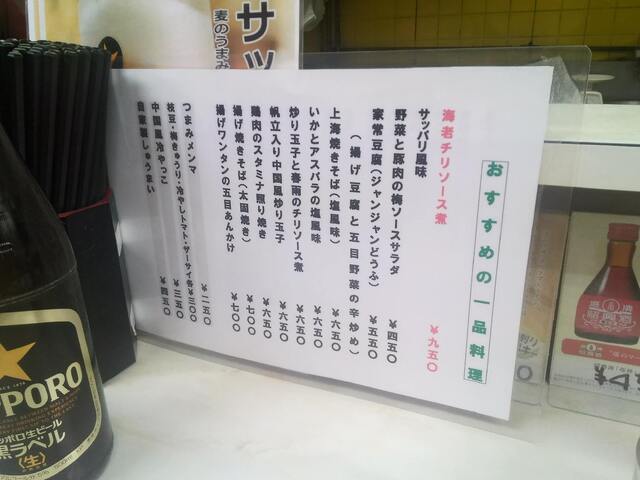 おすすめの一品料理
海老チリソース煮 ¥九五〇
サッパリ風味
野菜と豚肉の梅ソースサラダ ¥四五〇
家常豆腐(ジャンジャンどうふ) ¥五五〇
(揚げ豆腐と五目野菜の辛炒め)
上海焼きそば(塩風味) ¥六五〇
いかとアスパラの塩風味 ¥六五〇
炒り玉子と春雨のチリソース煮 ¥六五〇
帆立入り中国風炒り玉子 ¥六五〇
鶏肉のスタミナ照り焼き ¥六五〇
揚げ焼きそば(太固焼き) ¥七〇〇
揚げワンタンの五目あんかけ ¥七〇〇
つまみメンマ ¥二五〇
枝豆・梅きゅうり・冷やしトマト・ザーサイ各¥三〇〇
中国風冷やっこ ¥三五〇
自家製しゅうまい ¥四五〇
サッ
麦のうまみ
PPORO
ッポロ生ビール
黒ラベル
〈生〉